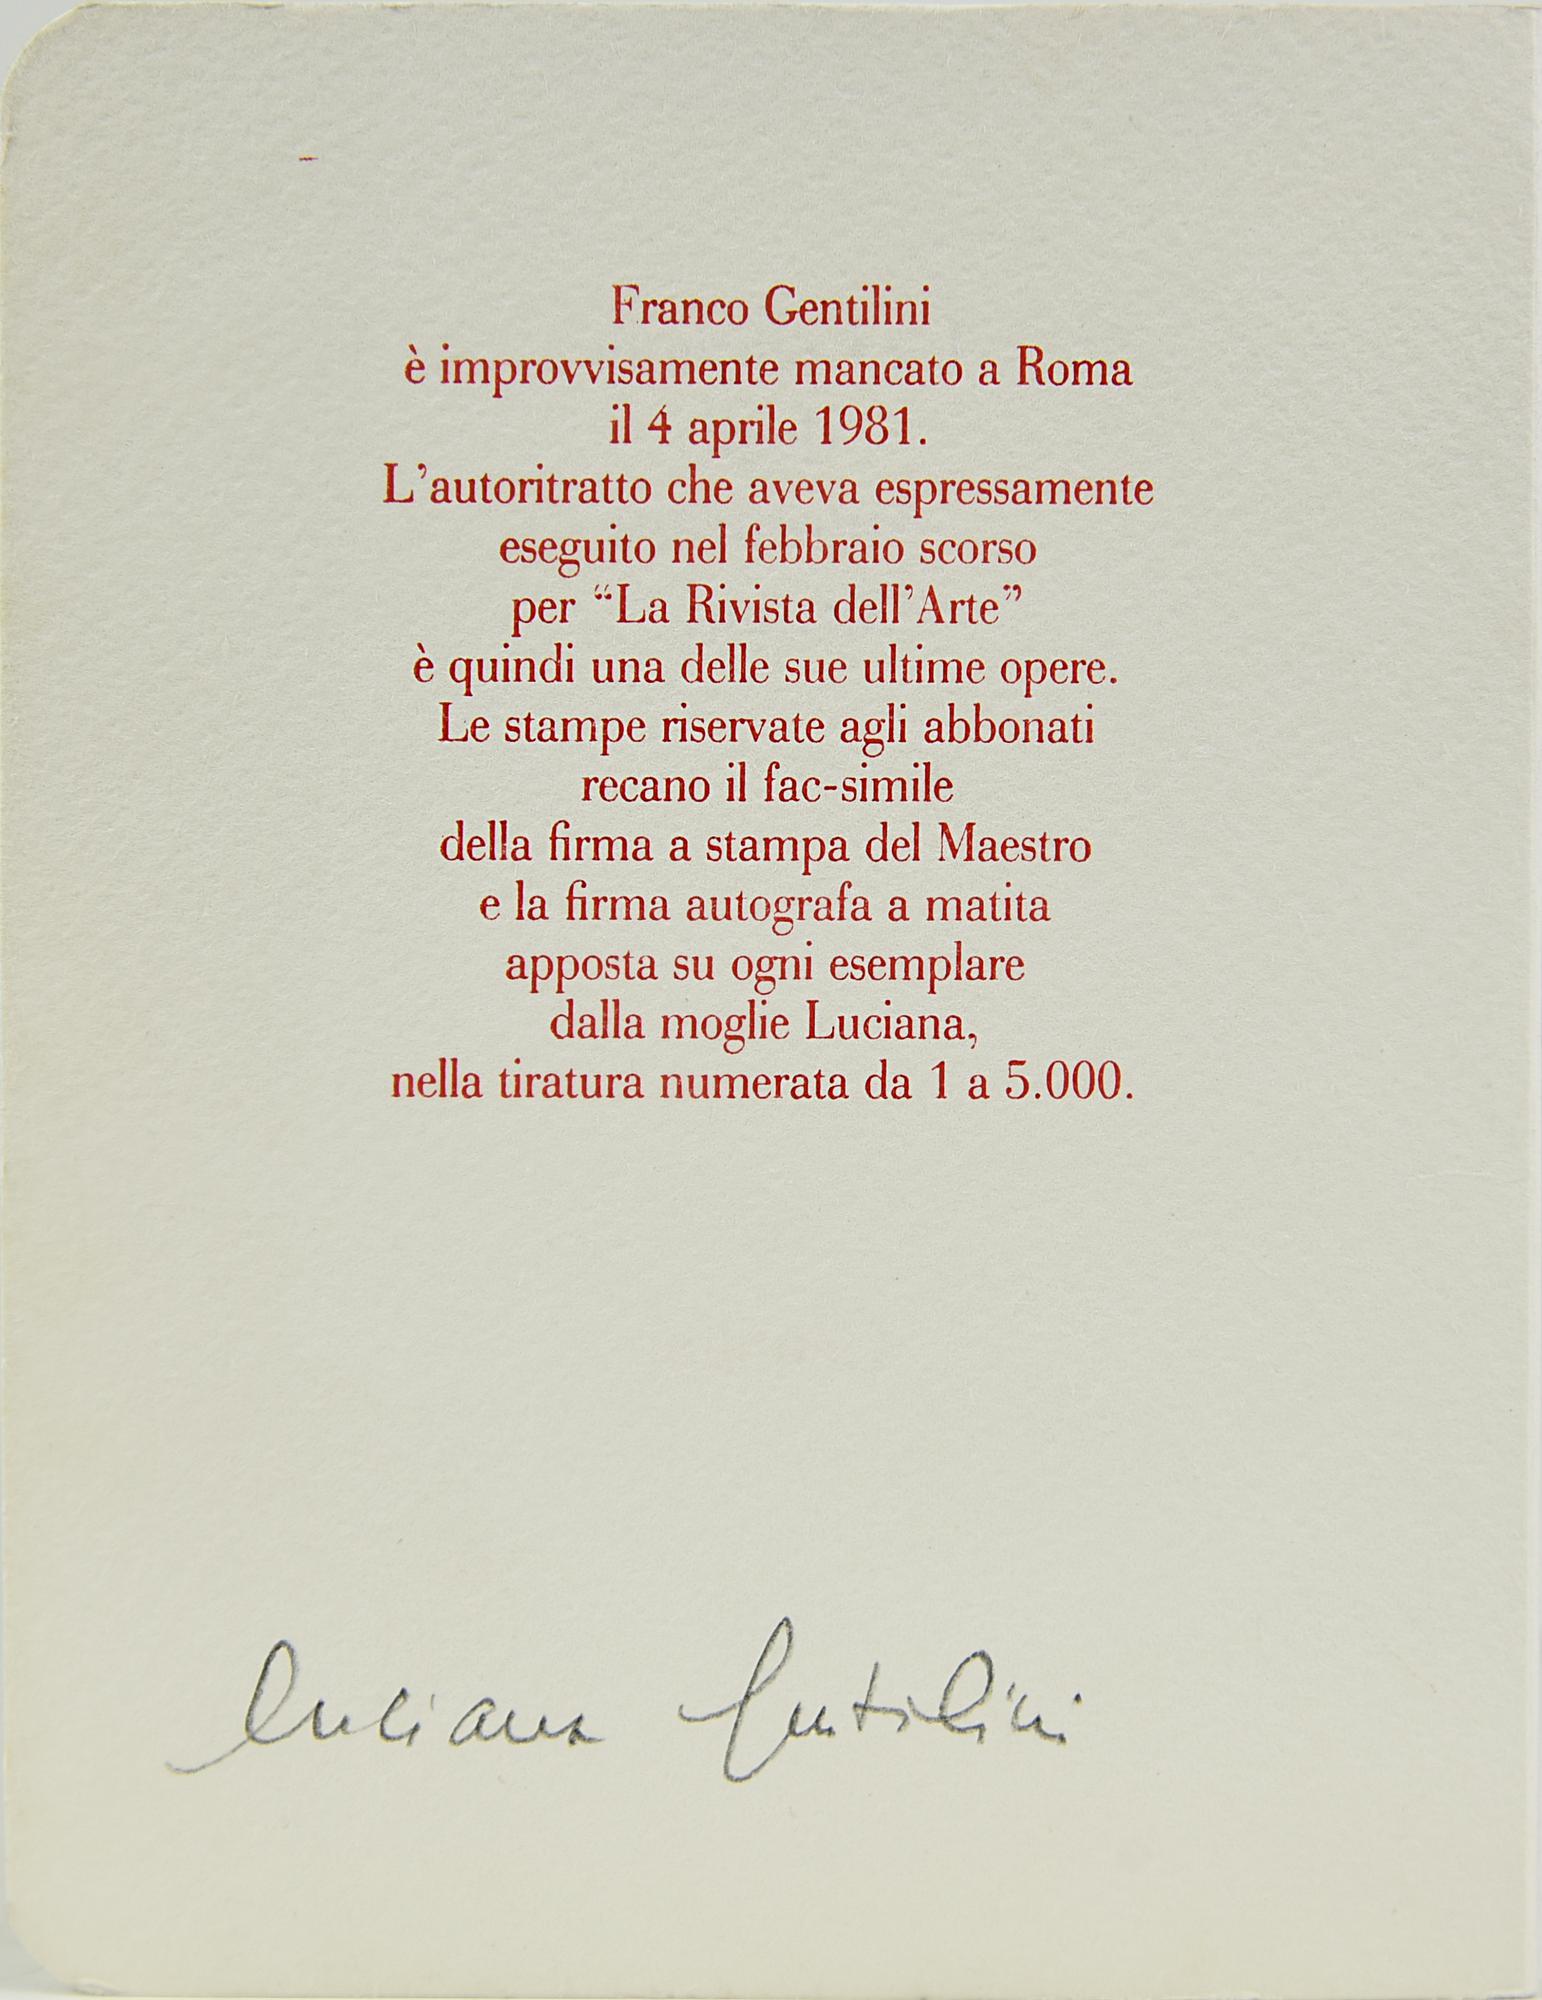 Franco Gentilini
è improvvisamente mancato a Roma
il 4 aprile 1981.
L'autoritratto che aveva espressamente
eseguito nel febbraio scorso
per “La Rivista dell'Arte”
è quindi una delle sue ultime opere.
Le stampe riservate agli abbonati
recano il fac-simile
della firma a stampa del Maestro
e la firma autografa a matita
apposta su ogni esemplare
dalla moglie Luciana,
nella tiratura numerata da 1 a 5.000.
Luciana Gentilini